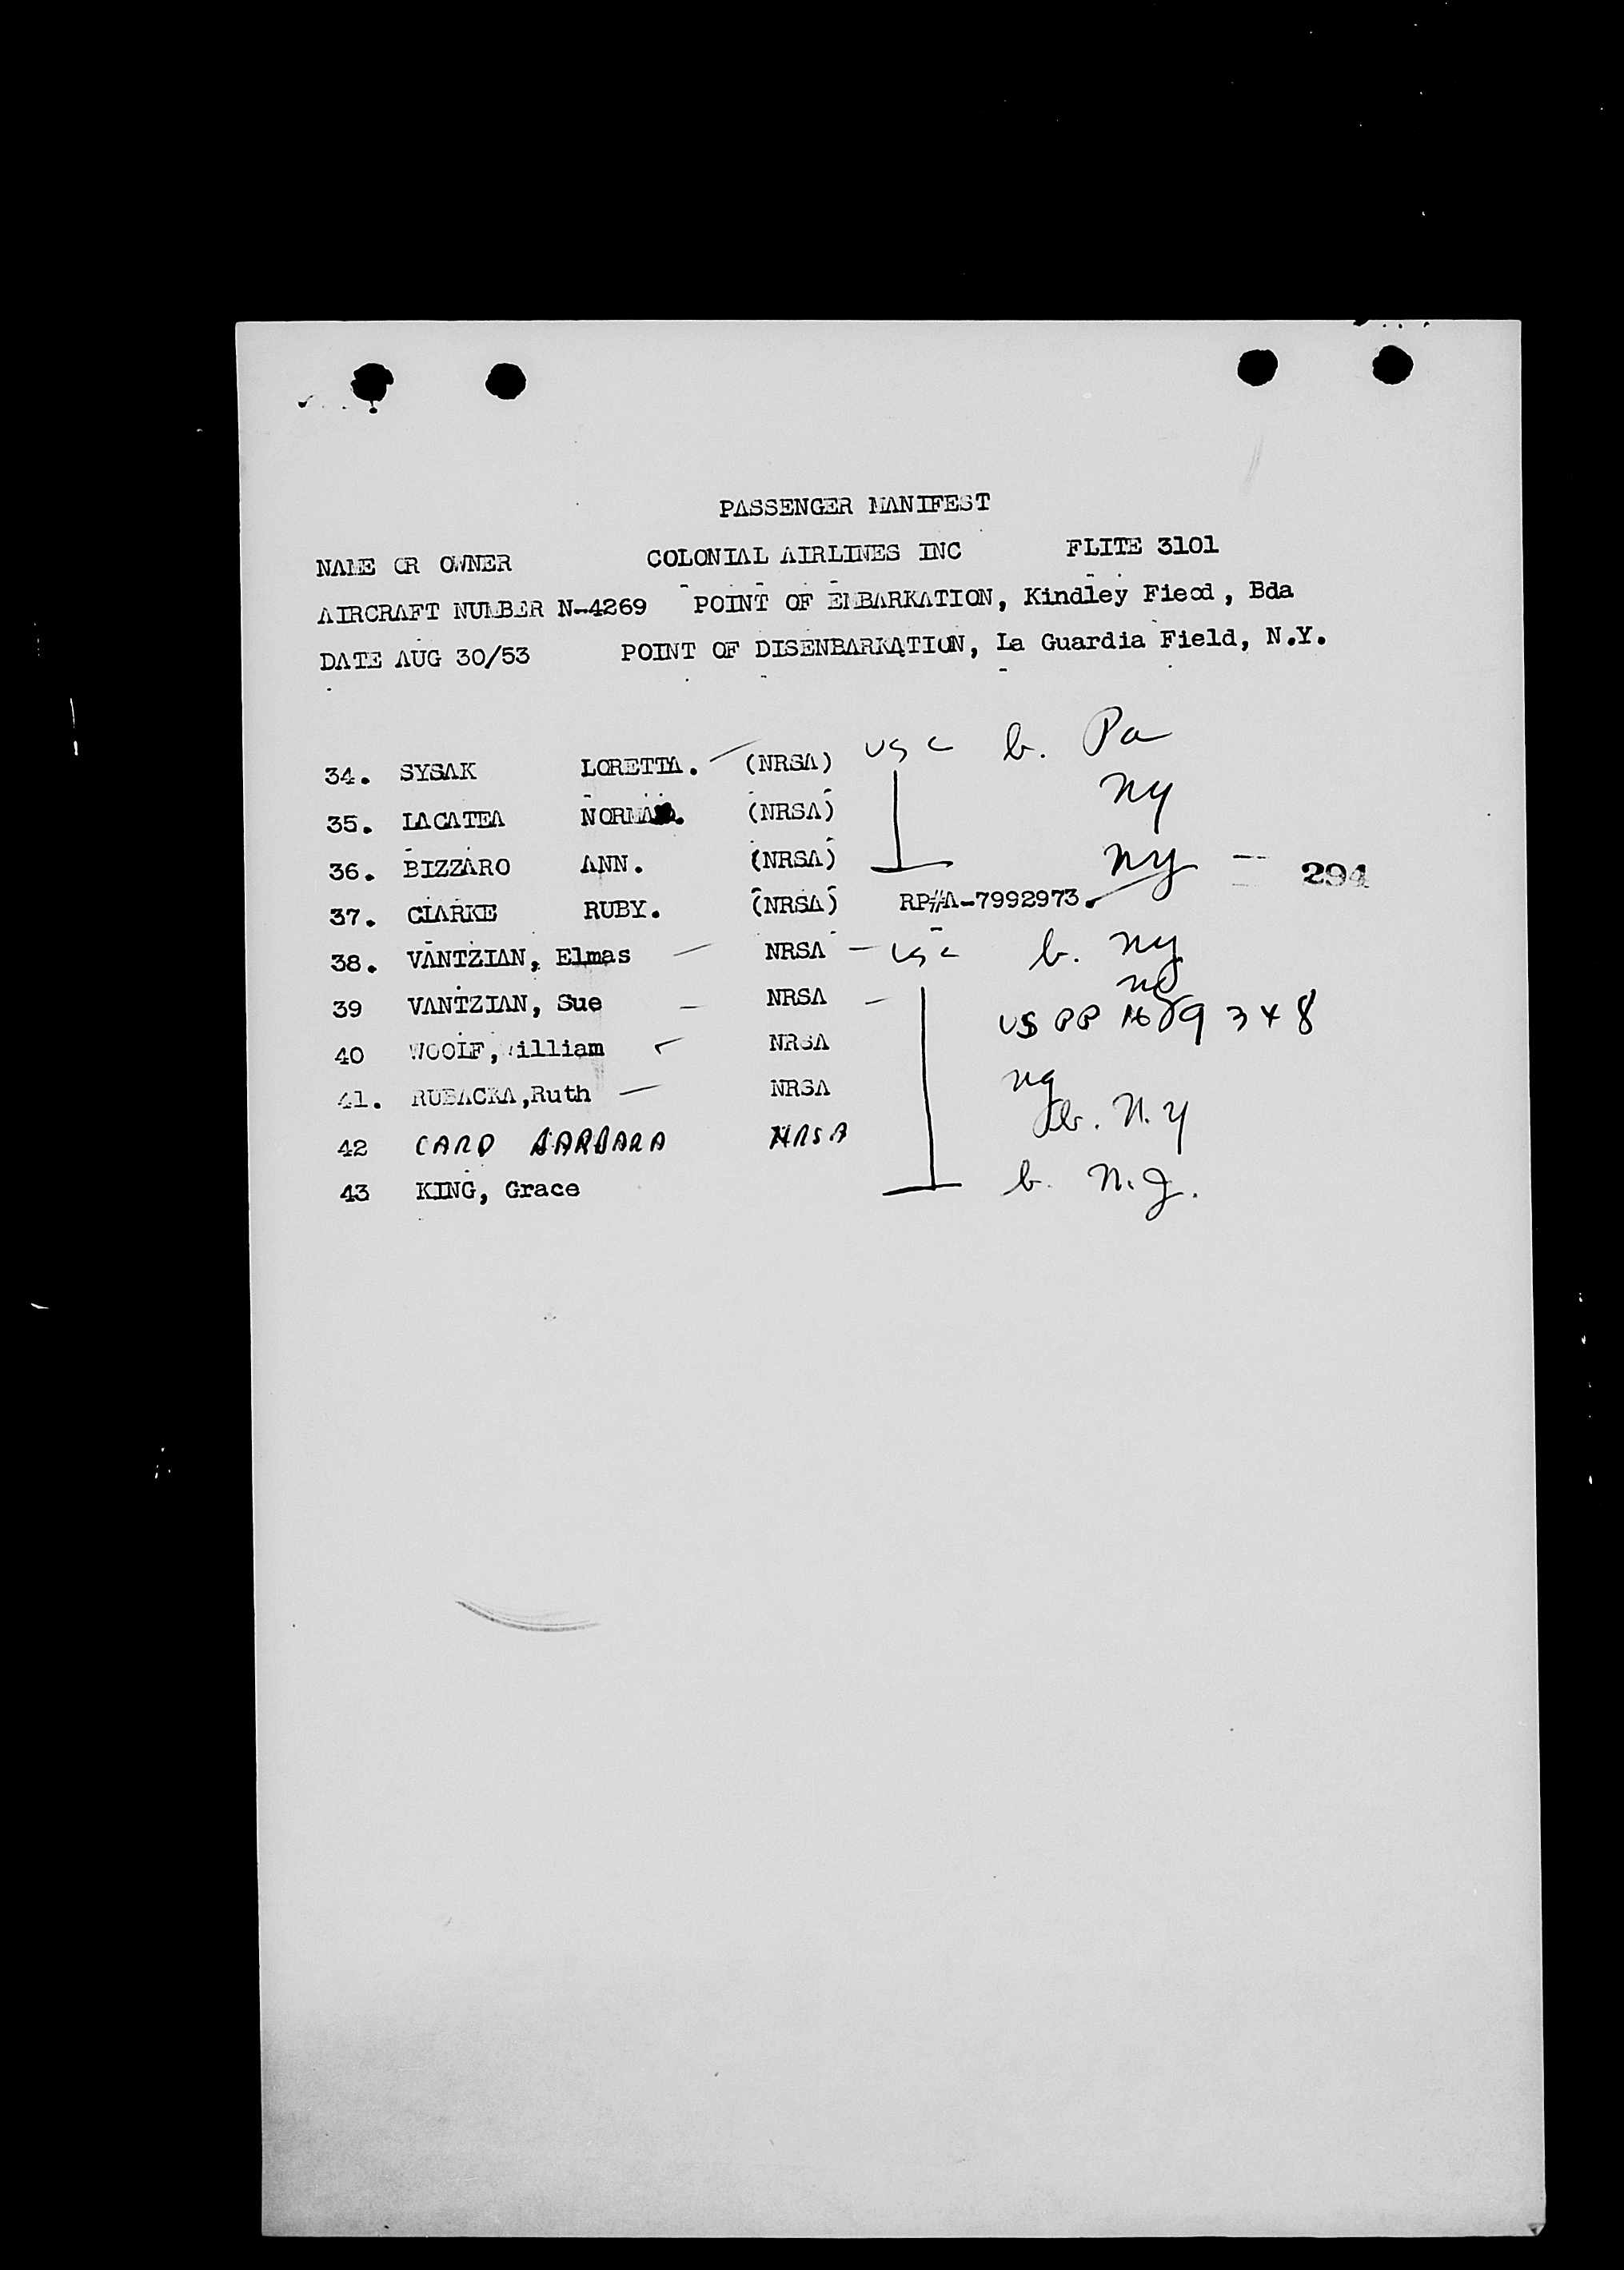 PASSENGER MANIFEST
NAME OR OWNER COLONIAL AIRLINES INC FLITE 3101
AIRCRAFT NUMBER N-4269 POINT OF EMBARKATION, Kindley Fieod, Bda
DATE AUG 30/53 POINT OF DISENBARKATION, La Guardia Field, N.Y.
34. SYSAK LORETTA. (NRSA) USC b. Pa
35. LACATEA NORMA. (NRSA) NY
36. BIZZARO ANN. (NRSA) NY 294
37. CLARKE RUBY. (NRSA) RP#A-7992973.
38. VANTZIAN, Elmas NRSA USC b. NY
39 VANTZIAN, Sue NRSA
40 WOOLF, William NRSA US PP
41. RUBACKA,Ruth NRSA
42 CARD BARBARA NRSA b. N.Y
43 KING, Grace b. N.J.